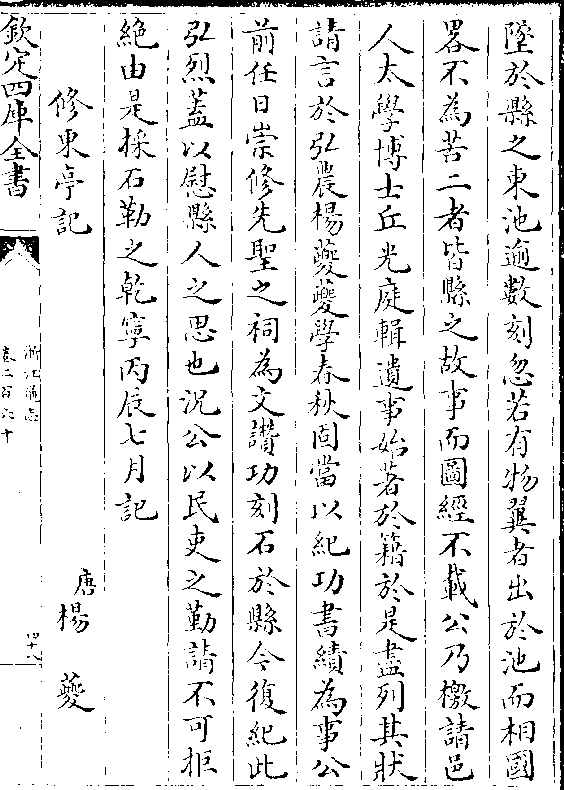 墜於縣之東池逾數刻忽若有物翼者出於池而相國
畧不為苦二者皆縣之故事而圖經不載公乃檄請邑
人太學博士丘光庭輯遺事始著於籍於是盡列其狀
請言於弘農楊夔夔學春秋固當以紀功書績為事公
前任日崇修先聖之祠為文讃功刻石於縣今復紀此
弘烈蓋以慰縣人之思也況公以民吏之勤請不可拒
絶由是採石勒之乾寧丙辰七月記
修東亭記 唐楊夔
欽定四庫全書
浙江通志
卷二百六十
四十八